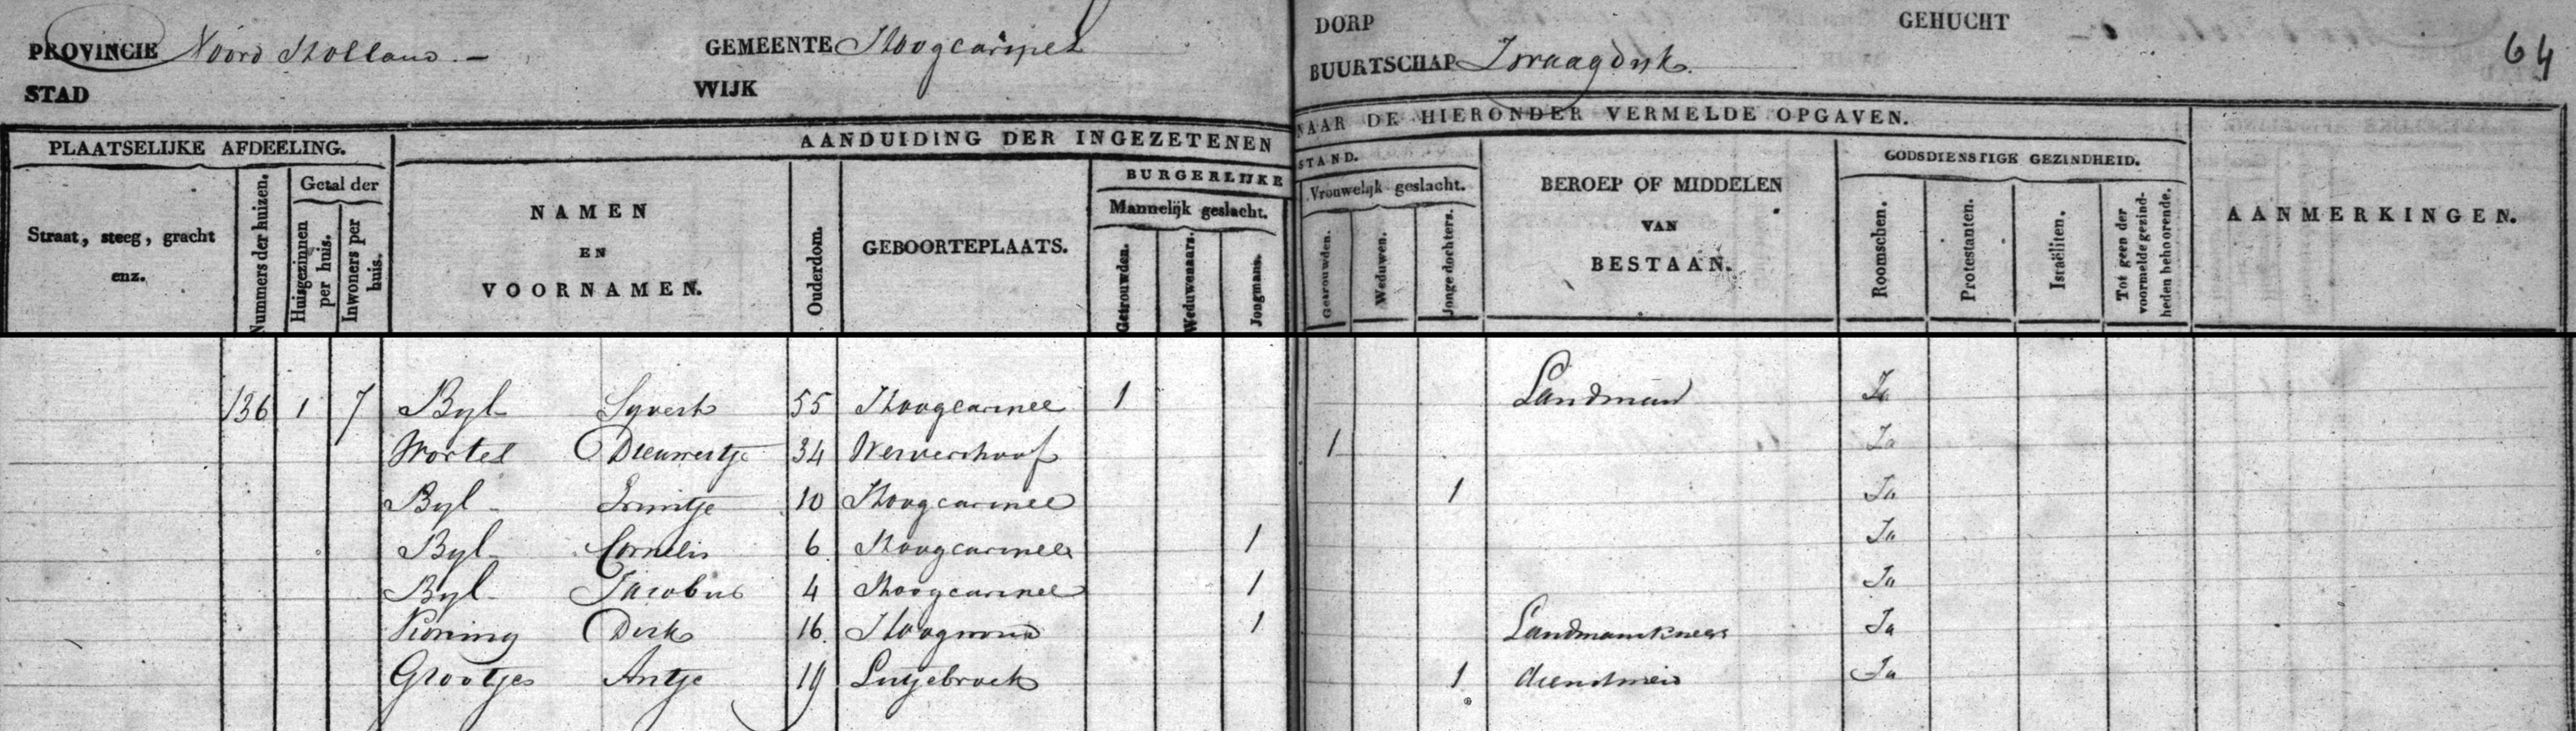 PROVINCIE Noord Holland. - GEMEENTE Hoogcarspel DORP GEHUCHT
STAD WIJK BUURTSCHAP Zwaagdyk. 64
PLAATSELIJKE AFDEELING. AANDUIDING DER INGEZETENEN NAAR DE HIERONDER VERMELDE OPGAVEN.
Straat, steeg, gracht enz.
Nummers der huizen.
Getal der
Huisgezinnen per huis.
Inwoners per huis.
NAMEN
EN
VOORNAMEN.
Ouderdom.
GEBOORTEPLAATS.
BURGERLIJKE STAND.
Mannelijk geslacht.
Getrouwden.
Weduwenaars.
Jongmans.
Vrouwelijk geslacht.
Getrouwden.
Weduwen.
Jonge dochters.
BEROEP OF MIDDELEN
VAN
BESTAAN.
GODSDIENSTIGE GEZINDHEID.
Roomschen.
Protestanten.
Israëliten.
Tot geen der voormelde gezindheden behoorende.
AANMERKINGEN.
136 1 7 Byl Syvert 55 Hoogcarspel 1 Landman Ja
Wortel Dieuwertje 34 Wervershoof 1 Ja
Byl Trintje 10 Hoogcarspel 1 Ja
Byl Cornelis 6 Hoogcarspel 1 Ja
Byl Jacobus 4 Hoogcarspel 1 Ja
Koning Dirk 16 Hoogwoud 1 Landmansknegt Ja
Grootjes Antje 19 Lutjebroek 1 dienstmeid Ja